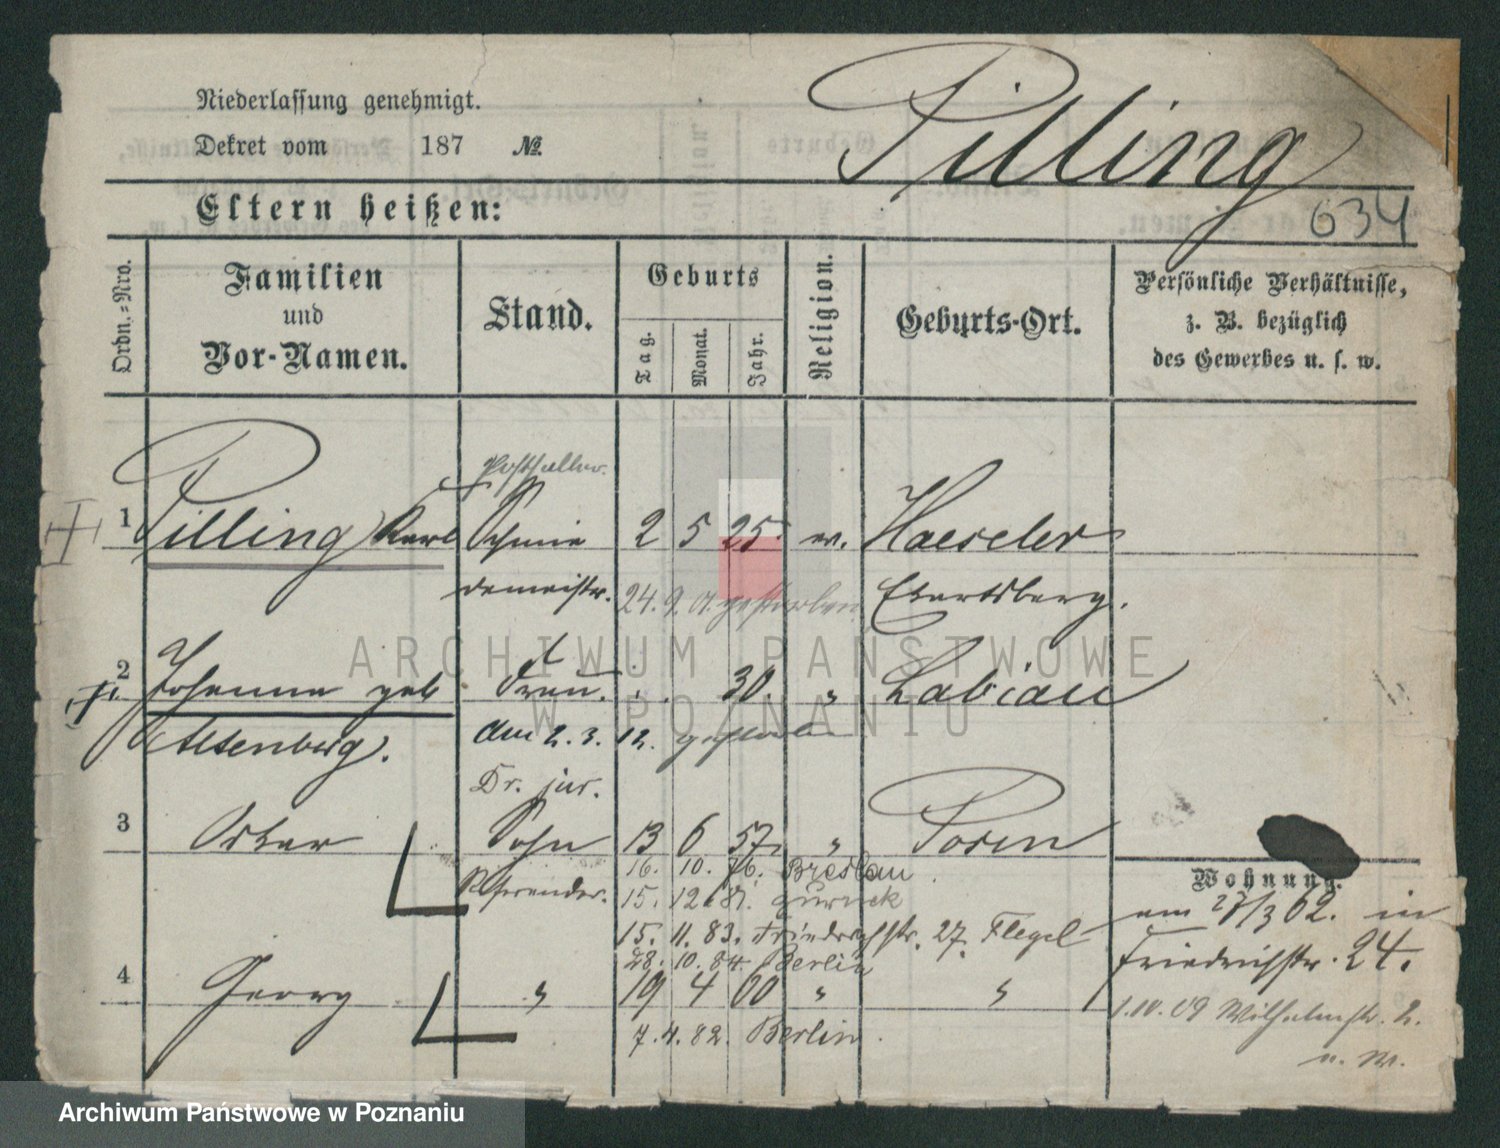 Niederlassung genehmigt.
Dekret vom 187 №.
Pilling
634
Eltern heißen:
Ordn.-Nro.
Familien und Vor-Namen.
Stand.
Geburts
Tag.
Monat.
Jahr.
Religion.
Geburts-Ort.
Persönliche Verhältnisse,
z. B. bezüglich
des Gewerbes u. s. w.
Posthalter.
1 Pilling Karl Schmie 2 5 25. ev. Haeseler
demeistr. 24. 9. 01. gestorben Ekartsberg.
2 Johanna geb Frau. 30. " Labiau
Altenberg. am 2. 3. 12. gestorben
Dr. jur.
3 Oskar Sohn 13 6 57. " Posen
16. 10. 76. Breslau.
Referendar. 15. 12. 81. zurück
Wohnung.
am 27/3 62. in
15. 11. 83. Friedrichstr. 27. Flegel
Friedrichstr. 24.
28. 10. 84. Berlin
4 Georg " 19 4 60 " "
1.IV.09 Wilhelmstr. 2.
7. 4. 82. Berlin.
u. M.
ARCHIWUM PAŃSTWOWE
W POZNANIU
Archiwum Państwowe w Poznaniu